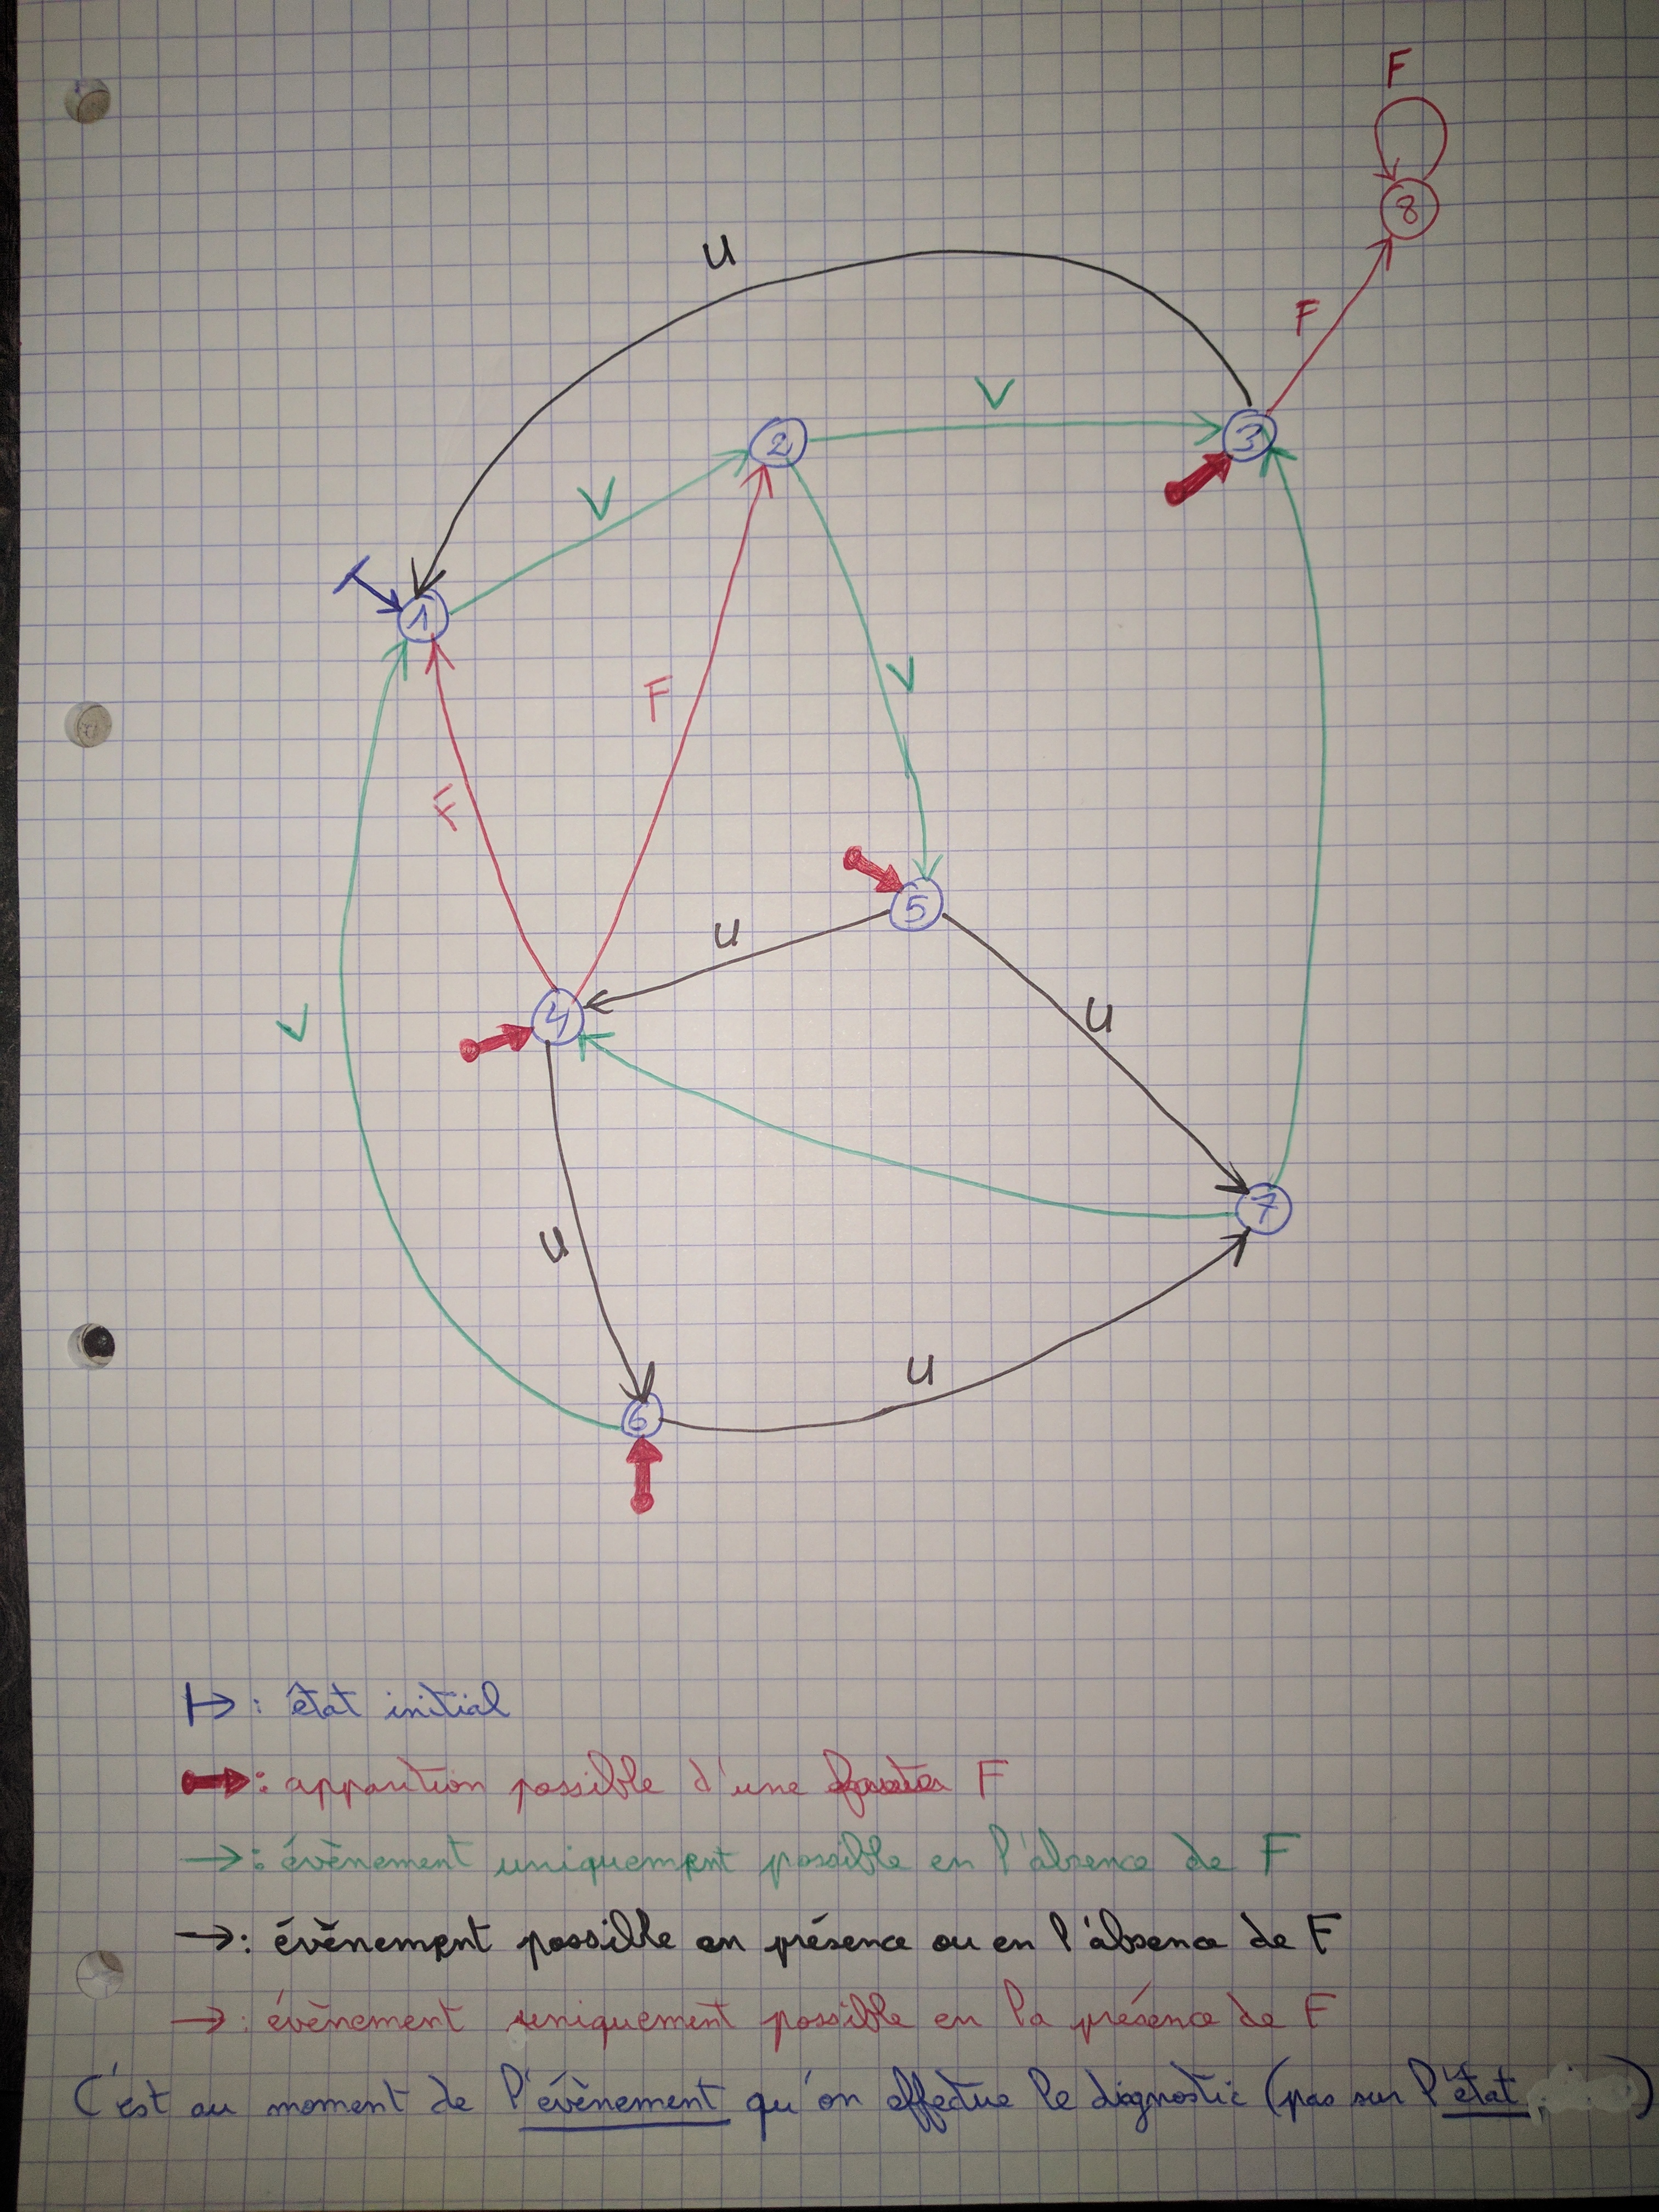 F
8
U
F
V
2
3
V
1
V
F
F
5
U
U
4
V
7
U
U
6
↦ : état initial
→ : apparition possible d'une F
→ : évènement uniquement possible en l'absence de F
→ : évènement possible en présence ou en l'absence de F
→ : évènement uniquement possible en la présence de F
C'est au moment de l'évènement qu'on effectue le diagnostic (pas sur l'état )